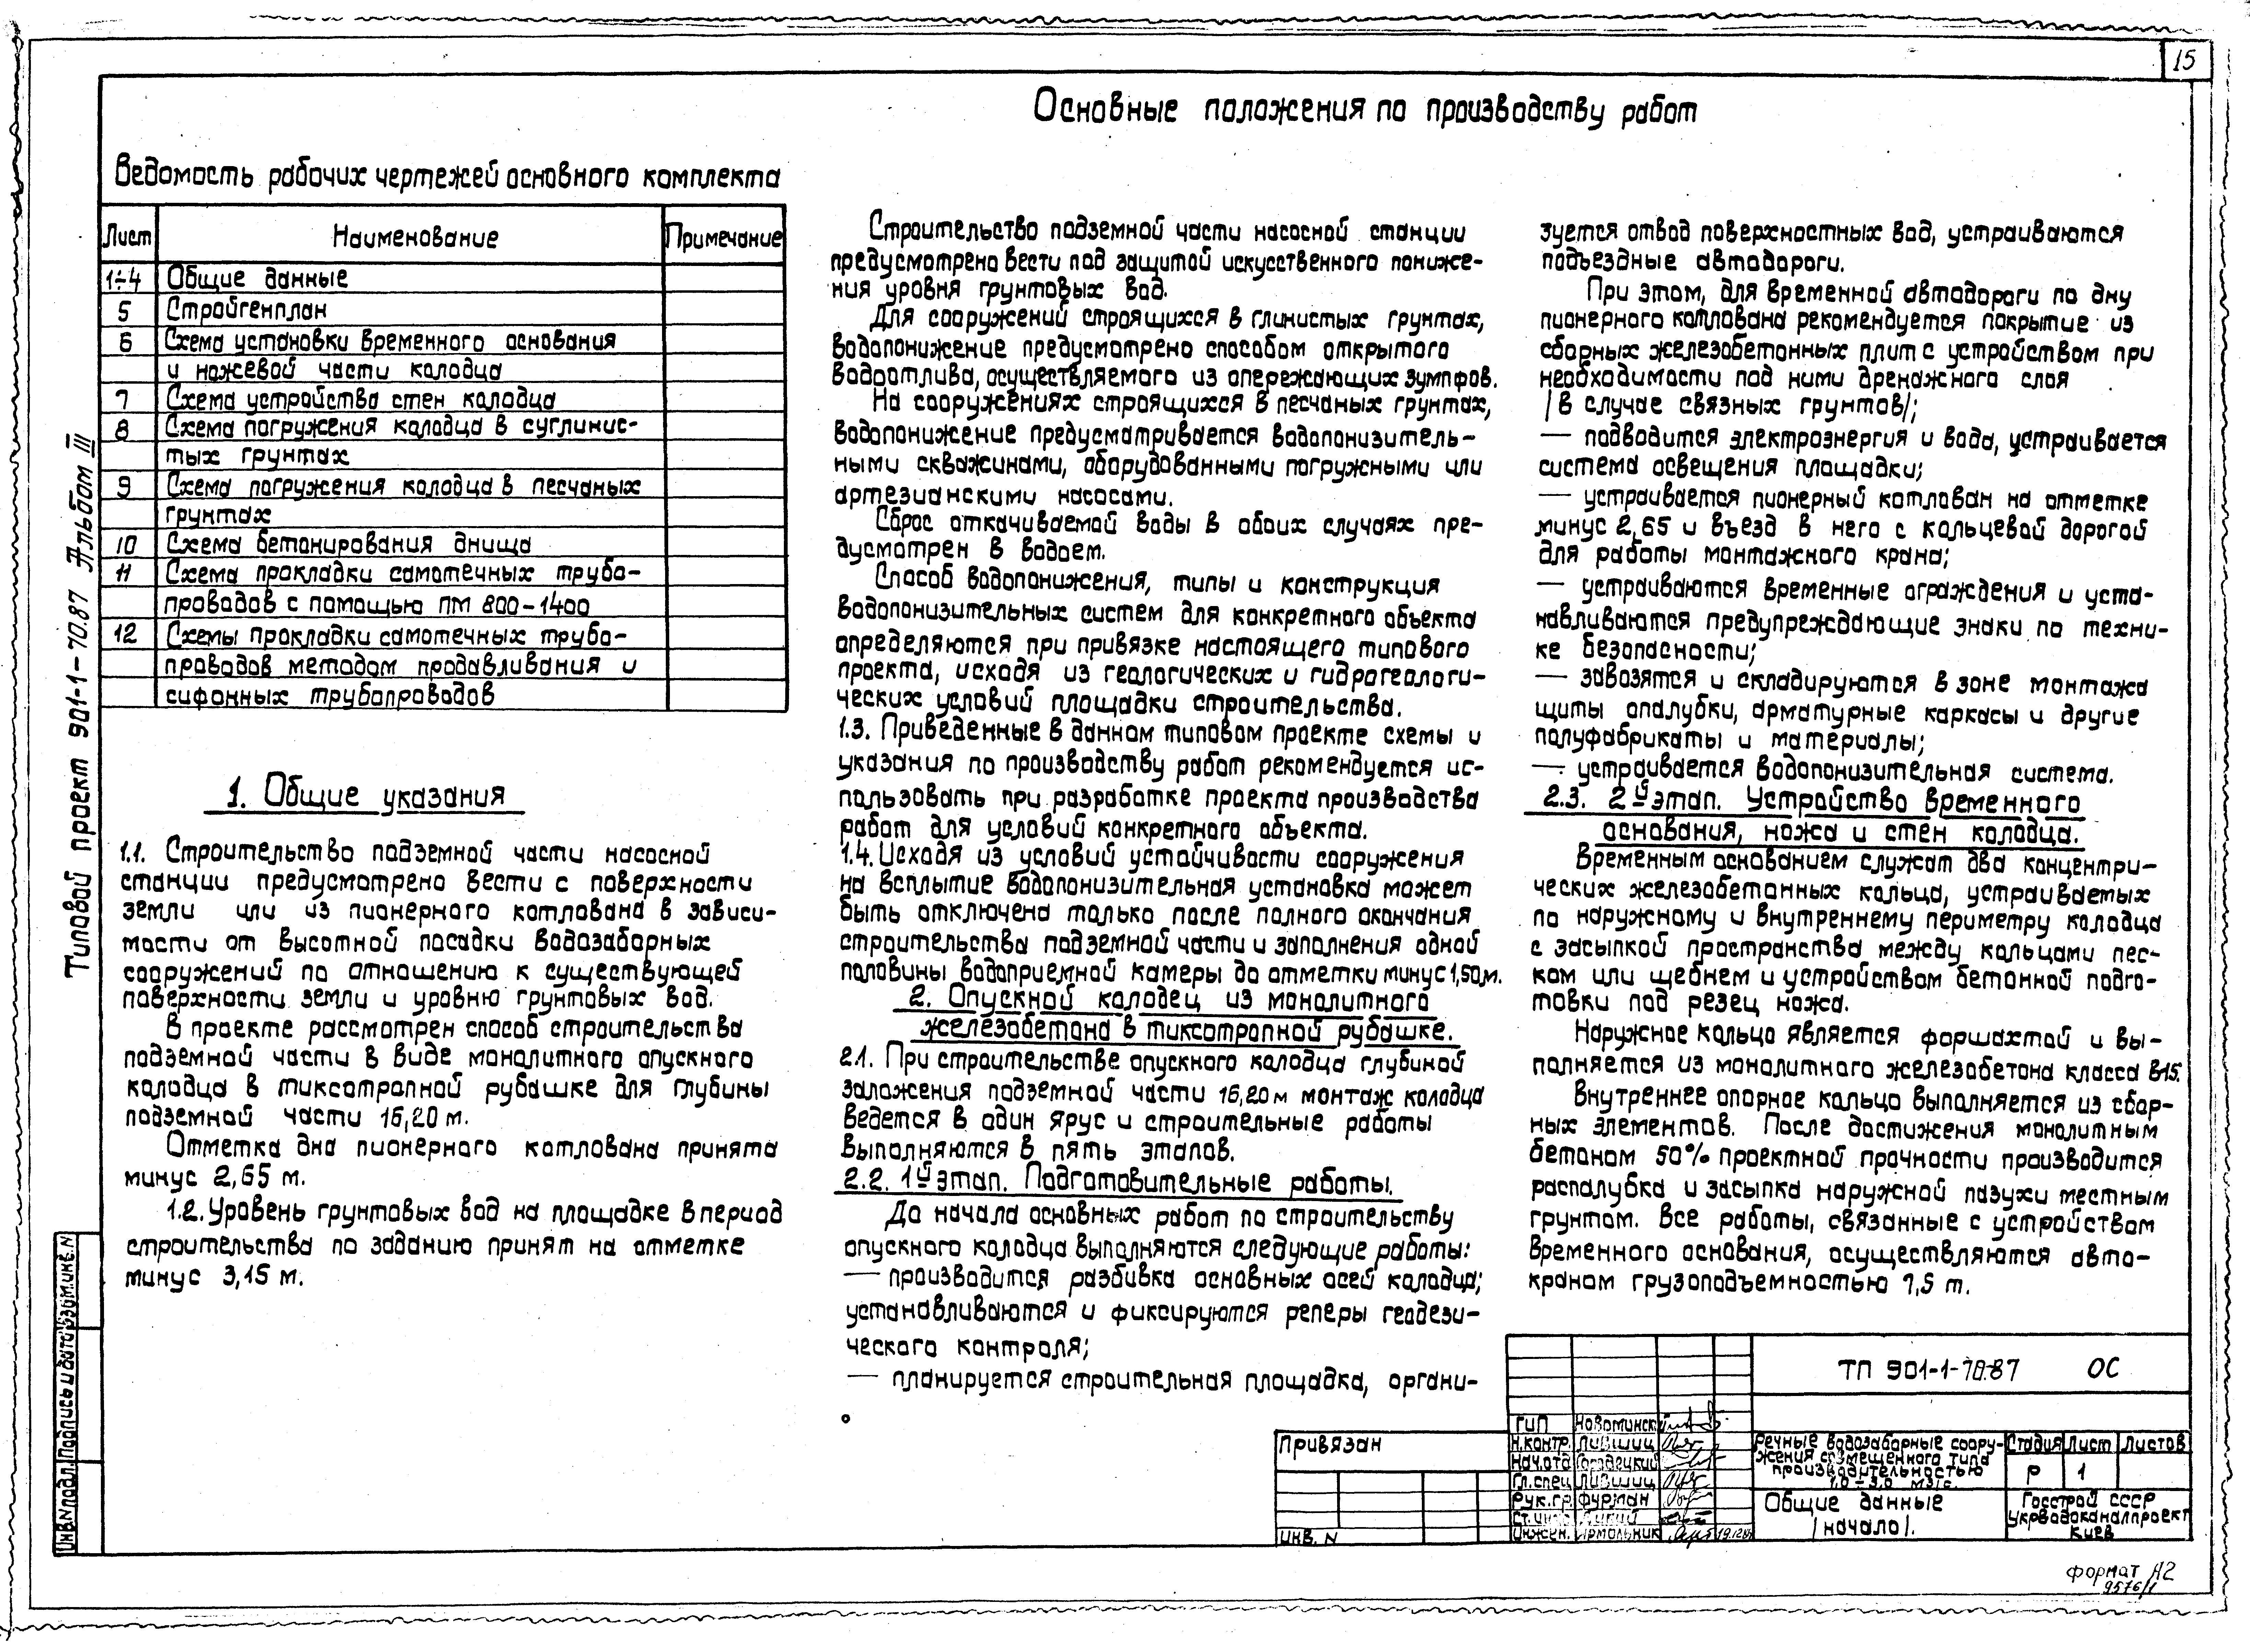 15
Основные положения по производству работ
Ведомость рабочих чертежей основного комплекта
Лист Наименование Примечание
1÷4 Общие данные
5 Стройгенплан
6 Схема установки временного основания
и ножевой части колодца
7 Схема устройства стен колодца
8 Схема погружения колодца в суглинис-
тых грунтах
9 Схема погружения колодца в песчаных
грунтах
10 Схема бетонирования днища
11 Схема прокладки самотечных трубо-
проводов с помощью ПМ 800-1400
12 Схемы прокладки самотечных трубо-
проводов методом продавливания и
сифонных трубопроводов
1. Общие указания
1.1. Строительство подземной части насосной
станции предусмотрено вести с поверхности
земли или из пионерного котлована в зависи-
мости от высотной посадки водозаборных
сооружений по отношению к существующей
поверхности земли и уровню грунтовых вод.
В проекте рассмотрен способ строительства
подземной части в виде монолитного опускного
колодца в тиксотропной рубашке для глубины
подземной части 16,20 м.
Отметка дна пионерного котлована принята
минус 2,65 м.
1.2. Уровень грунтовых вод на площадке в период
строительства по заданию принят на отметке
минус 3,15 м.
Строительство подземной части насосной станции
предусмотрено вести под защитой искусственного пониже-
ния уровня грунтовых вод.
Для сооружений строящихся в глинистых грунтах,
водопонижение предусмотрено способом открытого
водоотлива, осуществляемого из опережающих зумпфов.
На сооружениях строящихся в песчаных грунтах,
водопонижение предусматривается водопонизитель-
ными скважинами, оборудованными погружными или
артезианскими насосами.
Сброс откачиваемой воды в обоих случаях пре-
дусмотрен в водоем.
Способ водопонижения, типы и конструкция
водопонизительных систем для конкретного объекта
определяются при привязке настоящего типового
проекта, исходя из геологических и гидрогеологи-
ческих условий площадки строительства.
1.3. Приведенные в данном типовом проекте схемы и
указания по производству работ рекомендуется ис-
пользовать при разработке проекта производства
работ для условий конкретного объекта.
1.4. Исходя из условий устойчивости сооружения
на всплытие водопонизительная установка может
быть отключена только после полного окончания
строительства подземной части и заполнения одной
половины водоприемной камеры до отметки минус 1,50м.
2. Опускной колодец из монолитного
железобетона в тиксотропной рубашке.
2.1. При строительстве опускного колодца глубиной
заложения подземной части 16,20 м монтаж колодца
ведется в один ярус и строительные работы
выполняются в пять этапов.
2.2. 1й этап. Подготовительные работы.
До начала основных работ по строительству
опускного колодца выполняются следующие работы:
— производится разбивка основных осей колодца;
устанавливаются и фиксируются реперы геодези-
ческого контроля;
— планируется строительная площадка, органи-
зуется отвод поверхностных вод, устраиваются
подъездные автодороги.
При этом, для временной автодороги по дну
пионерного котлована рекомендуется покрытие из
сборных железобетонных плит с устройством при
необходимости под ними дренажного слоя
/в случае связных грунтов/;
— подводится электроэнергия и вода, устраивается
система освещения площадки;
— устраивается пионерный котлован на отметке
минус 2,65 и въезд в него с кольцевой дорогой
для работы монтажного крана;
— устраиваются временные ограждения и уста-
навливаются предупреждающие знаки по техни-
ке безопасности;
— завозятся и складируются в зоне монтажа
щиты опалубки, арматурные каркасы и другие
полуфабрикаты и материалы;
— устраивается водопонизительная система.
2.3. 2й этап. Устройство временного
основания, ножа и стен колодца.
Временным основанием служат два концентри-
ческих железобетонных кольца, устраиваемых
по наружному и внутреннему периметру колодца
с засыпкой пространства между кольцами пес-
ком или щебнем и устройством бетонной подго-
товки под резец ножа.
Наружное кольцо является форшахтой и вы-
полняется из монолитного железобетона класса В15.
Внутреннее опорное кольцо выполняется из сбор-
ных элементов. После достижения монолитным
бетоном 50% проектной прочности производится
распалубка и засыпка наружной пазухи местным
грунтом. Все работы, связанные с устройством
временного основания, осуществляются авто-
краном грузоподъемностью 7,5 т.
Типовой проект 901-1-70.87 Альбом III
Инв.N подл. Подпись и дата Взам.инв.N
Привязан
Инв. N
ГИП Новоминск
Н.контр. Лившиц
Нач.отд Городецкий
Гл.спец Лившиц
Рук.гр. Фурман
Ст.инж.
Инжен. Ярмольник
ТП 901-1-70.87 ОС
Речные водозаборные соору-
жения совмещенного типа
производительностью
1,0-3,0 м3/с.
Стадия Лист Листов
Р 1
Общие данные
/начало/.
Госстрой СССР
Укрводоканалпроект
Киев
Формат А2
9576/1